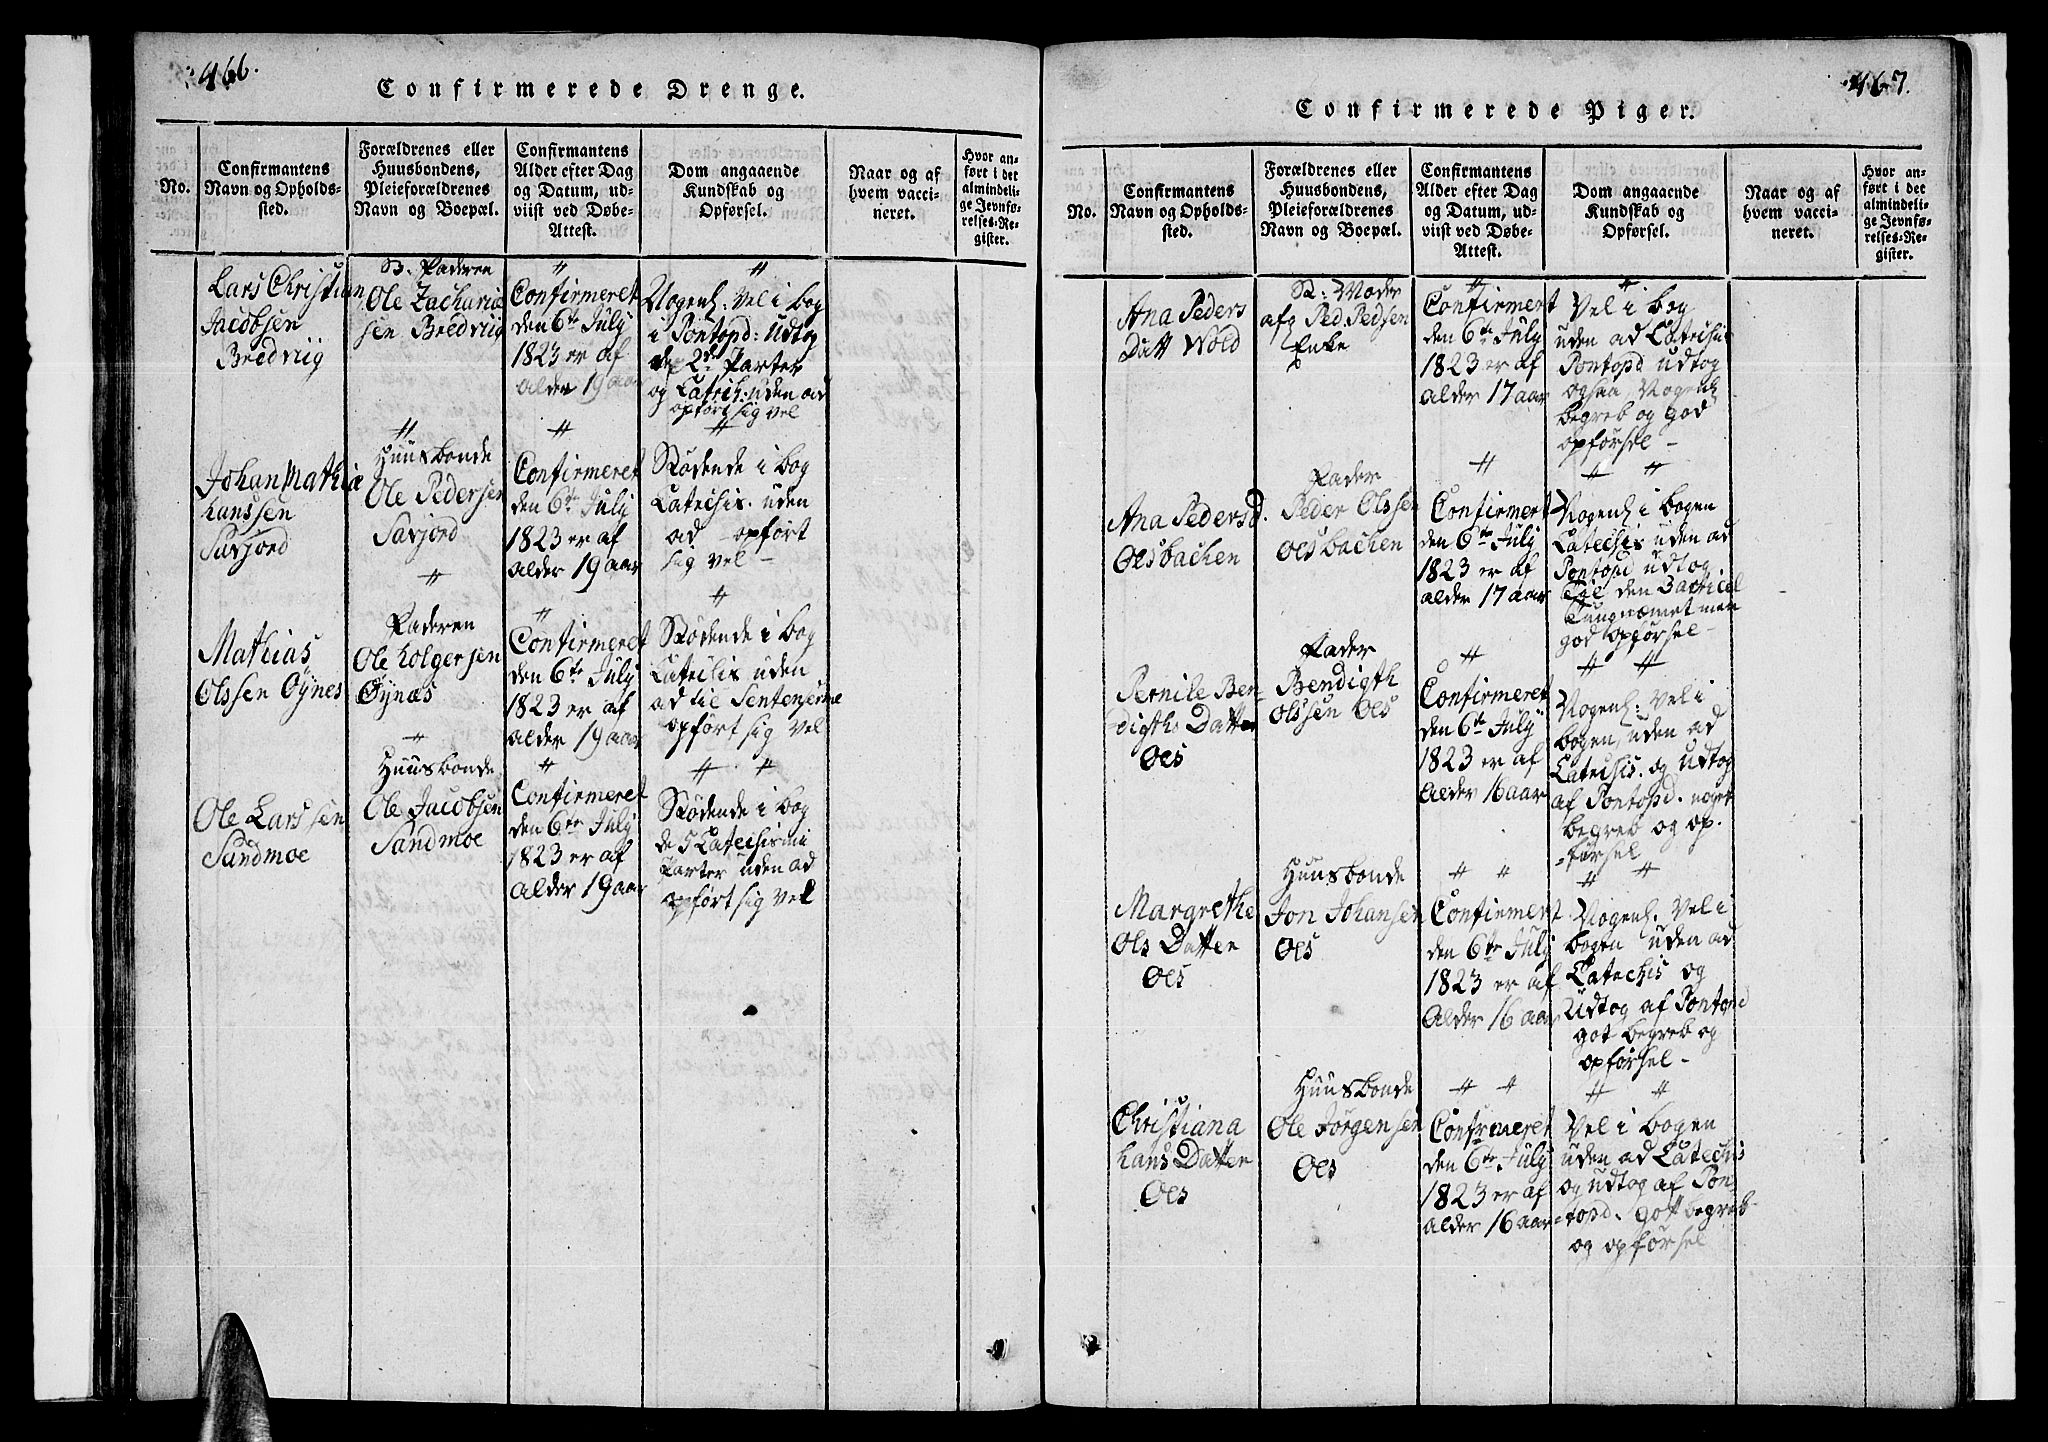 466.
Confirmerede Drenge.
No.
Confirmantens
Navn og Opholds-
sted.
Forældrenes eller
Huusbondens,
Pleieforældrenes
Navn og Boepæl.
Confirmantens
Alder efter Dag
og Datum, ud-
viist ved Døbe-
Attest.
Dom angaaende
Kundskab og
Opførsel.
Naar og af
hvem vacci-
neret.
Hvor an-
ført i det
almindeli-
ge Jevnfø-
relses-Re-
gister.
Lars Christian
Jacobsen
Bredviig
St. Faderen
Ole Zacharia
sen Bredviig
Confirmeret
den 6te July
1823 er af
alder 19 aar
Nogenl: vel i bog
i Pontopd: udtog
de 2de Parter
og Catech: uden ad
opført sig vel
Johan Mathia
hanssen
Savjord
Huusbonde
Ole Pedersen
Savjord
Confirmeret
den 6te July
1823 er af
alder 19 aar
Stødende i bog
Catechis. uden
ad - opført
sig vel -
Mathias
Olssen Øynes
Faderen
Ole holgersen
Øynæs
Confirmeret
den 6te July
1823 er af
alder 19 aar
Stødende i bog
Catechis uden
ad til Sentenserne
opført sig vel
Ole Larssen
Sandmoe
Huusbonde
Ole Jacobsen
Sandmoe
Confirmeret
den 6te July
1823 er af
Alder 19 aar
Stødende i bog
de 5 Catechismi
Parter uden ad
opført sig vel
467.
Confirmerede Piger.
No.
Confirmantens
Navn og Opholds-
sted.
Forældrenes eller
Huusbondens,
Pleieforældrenes
Navn og Boepæl.
Confirmantens
Alder efter Dag
og Datum, ud-
viist ved Døbe-
Attest.
Dom angaaende
Kundskab og
Opførsel.
Naar og af
hvem vacci-
neret.
Hvor an-
ført i det
almindeli-
ge Jevnfø-
relses-Re-
gister.
Ana Peders
Datt Wold
St: Moder
afg Ped. Pedsen
Enke
Confirmert
den 6te July
1823 er af
alder 17 aar
Vel i bog
uden ad Catechis
Pontopd udtog
ogsaa Nogenl
begreb og god
opførsel -
Ana Pedersd.
Oesbachen
Fader
Peder Olssen
Oesbachen
Confirmert
den 6te July
1823 er af
alder 17 aar
Nogenl i bogen
Catechis uden ad
Pontopd udtog
til den
Tungnæmet men
god opførsel -
Pernile Ben-
digths Datter
Oes
Fader
Bendigth
Olssen Oes
Confirmeret
den 6te July
1823 er af
Alder 16 aar
Nogenl: vel i
bogen, uden ad
Catechis. og udtog
af Pontopd. noget
begreb og op.
-førsel
Margrethe
Ols Datter
Oes
Huusbonde
Jon Johansen
Oes
Confirmert
den 6te July
1823 er af
Alder 16 aar
Nogenl. vel i
bogen uden ad
Catechis og
Udtog af Pontopd
got begreb og
opførsel -
Christiana
hans Datter
Oes
Huusbonde
Ole Jørgensen
Oes
Confirmeret
den 6te July
1823 er af
alder 16 aar
Vel i bogen
uden ad Catechis
og udtog af Pon
-topd. gott begreb
og opførsel